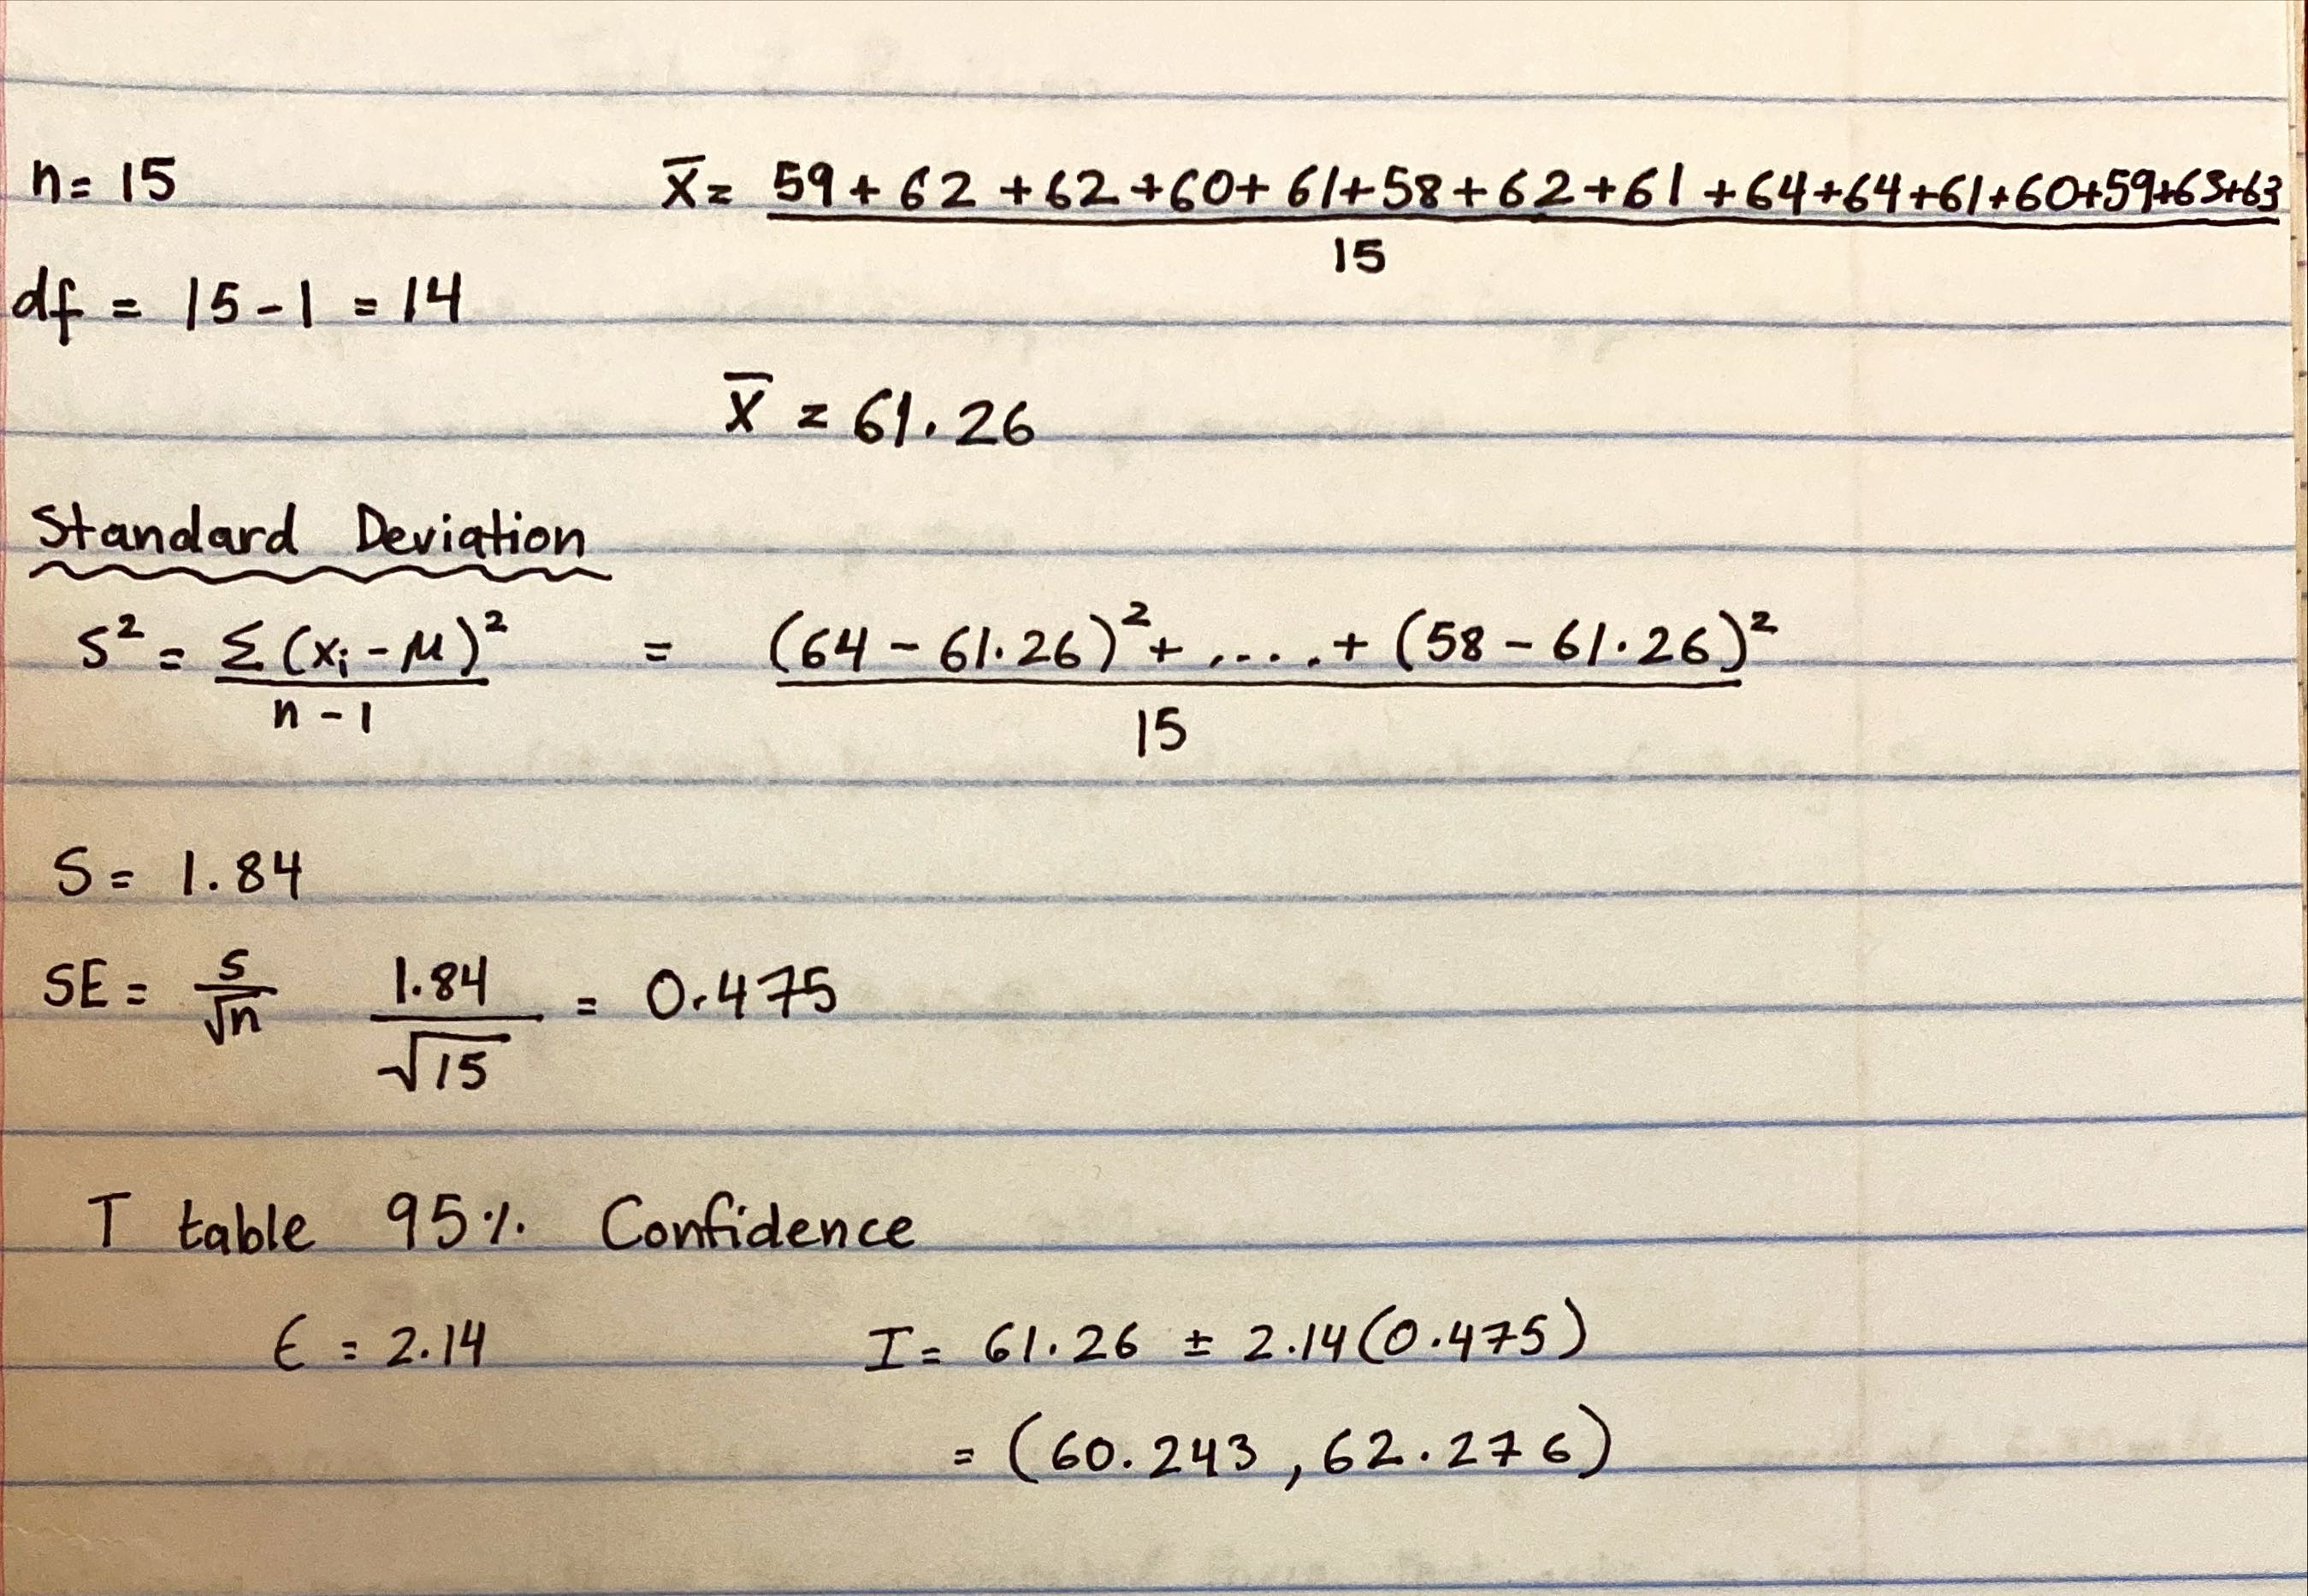 n= 15
x̄= 59+62+62+60+61+58+62+61+64+64+61+60+59+63+63
15
df = 15-1 = 14
x̄ = 61.26
Standard Deviation
S² = Σ(xᵢ-μ)² = (64-61.26)²+.....+(58-61.26)²
n-1 15
S= 1.84
SE= s/√n 1.84/√15 = 0.475
T table 95% Confidence
ϵ = 2.14 I= 61.26 ± 2.14(0.475)
= (60.243, 62.276)